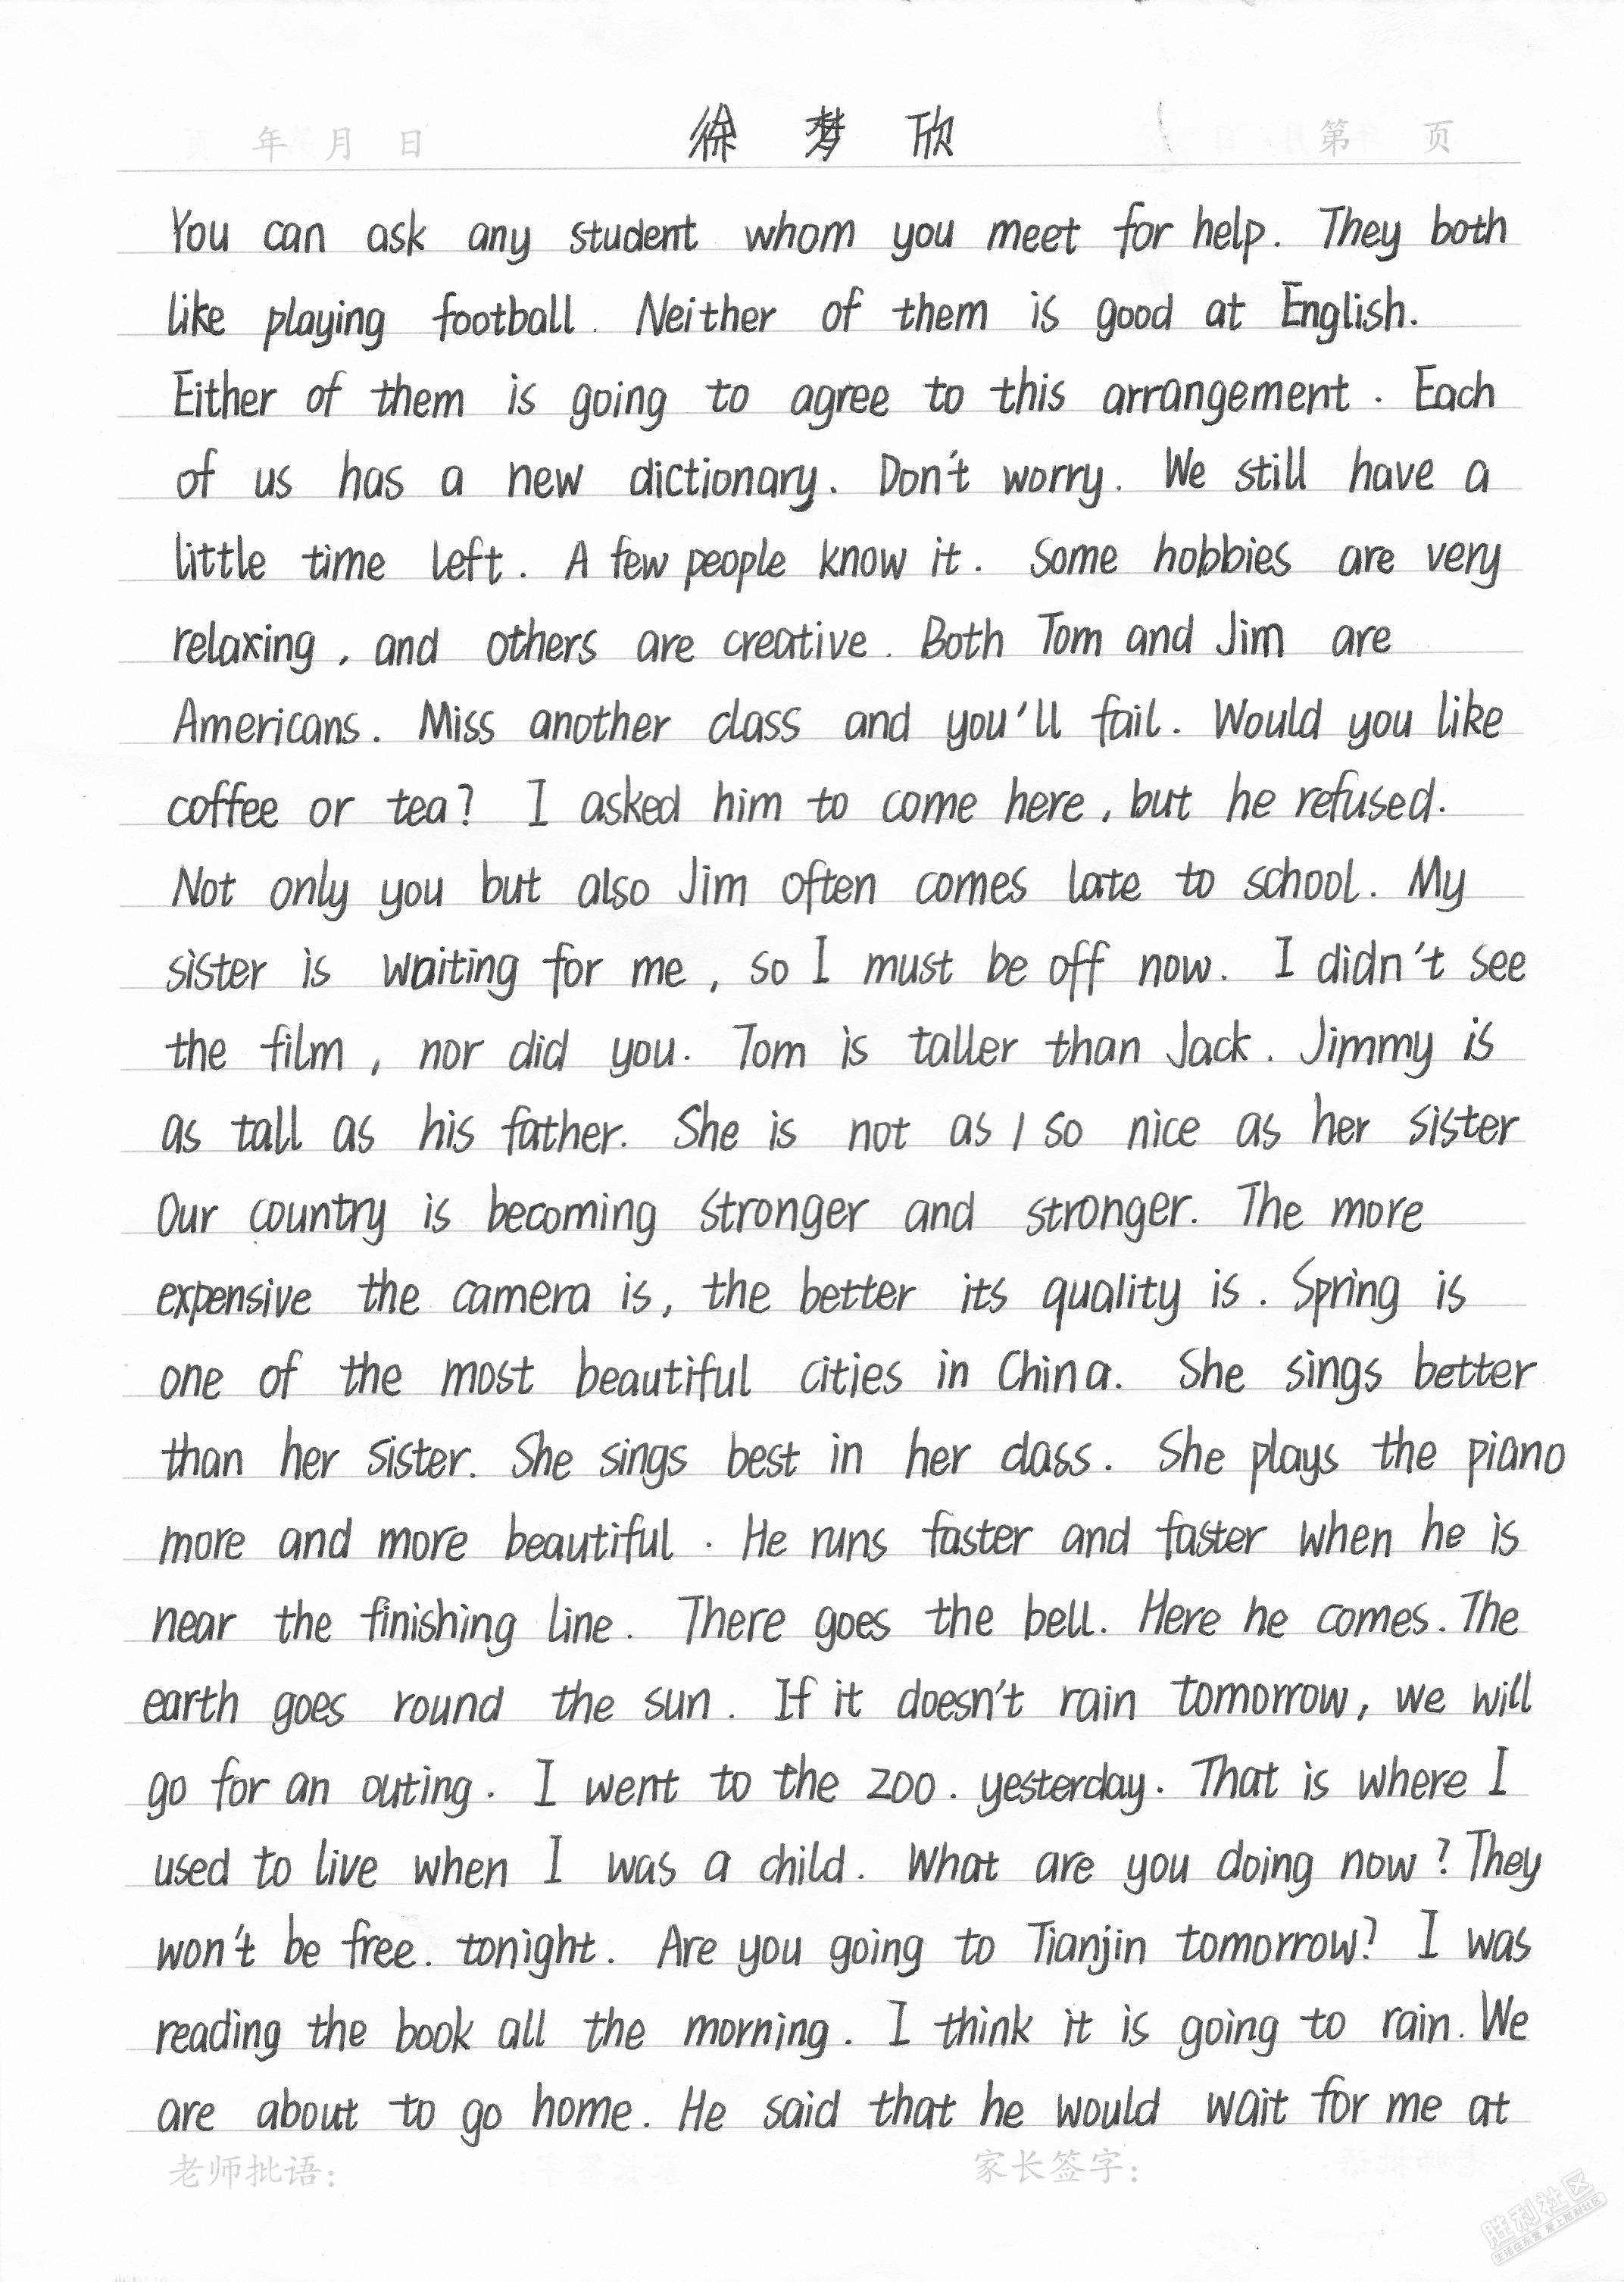 年 月 日 徐 梦 欣 第 页
You can ask any student whom you meet for help. They both
like playing football. Neither of them is good at English.
Either of them is going to agree to this arrangement. Each
of us has a new dictionary. Don't worry. We still have a
little time left. A few people know it. Some hobbies are very
relaxing, and others are creative. Both Tom and Jim are
Americans. Miss another class and you'll fail. Would you like
coffee or tea? I asked him to come here, but he refused.
Not only you but also Jim often comes late to school. My
sister is waiting for me, so I must be off now. I didn't see
the film, nor did you. Tom is taller than Jack. Jimmy is
as tall as his father. She is not as / so nice as her sister
Our country is becoming stronger and stronger. The more
expensive the camera is, the better its quality is. Spring is
one of the most beautiful cities in China. She sings better
than her sister. She sings best in her class. She plays the piano
more and more beautiful. He runs faster and faster when he is
near the finishing line. There goes the bell. Here he comes. The
earth goes round the sun. If it doesn't rain tomorrow, we will
go for an outing. I went to the zoo. yesterday. That is where I
used to live when I was a child. What are you doing now? They
won't be free. tonight. Are you going to Tianjin tomorrow? I was
reading the book all the morning. I think it is going to rain. We
are about to go home. He said that he would wait for me at
老师批语: 家长签字:
胜利社区
生活在东营 爱上胜利社区